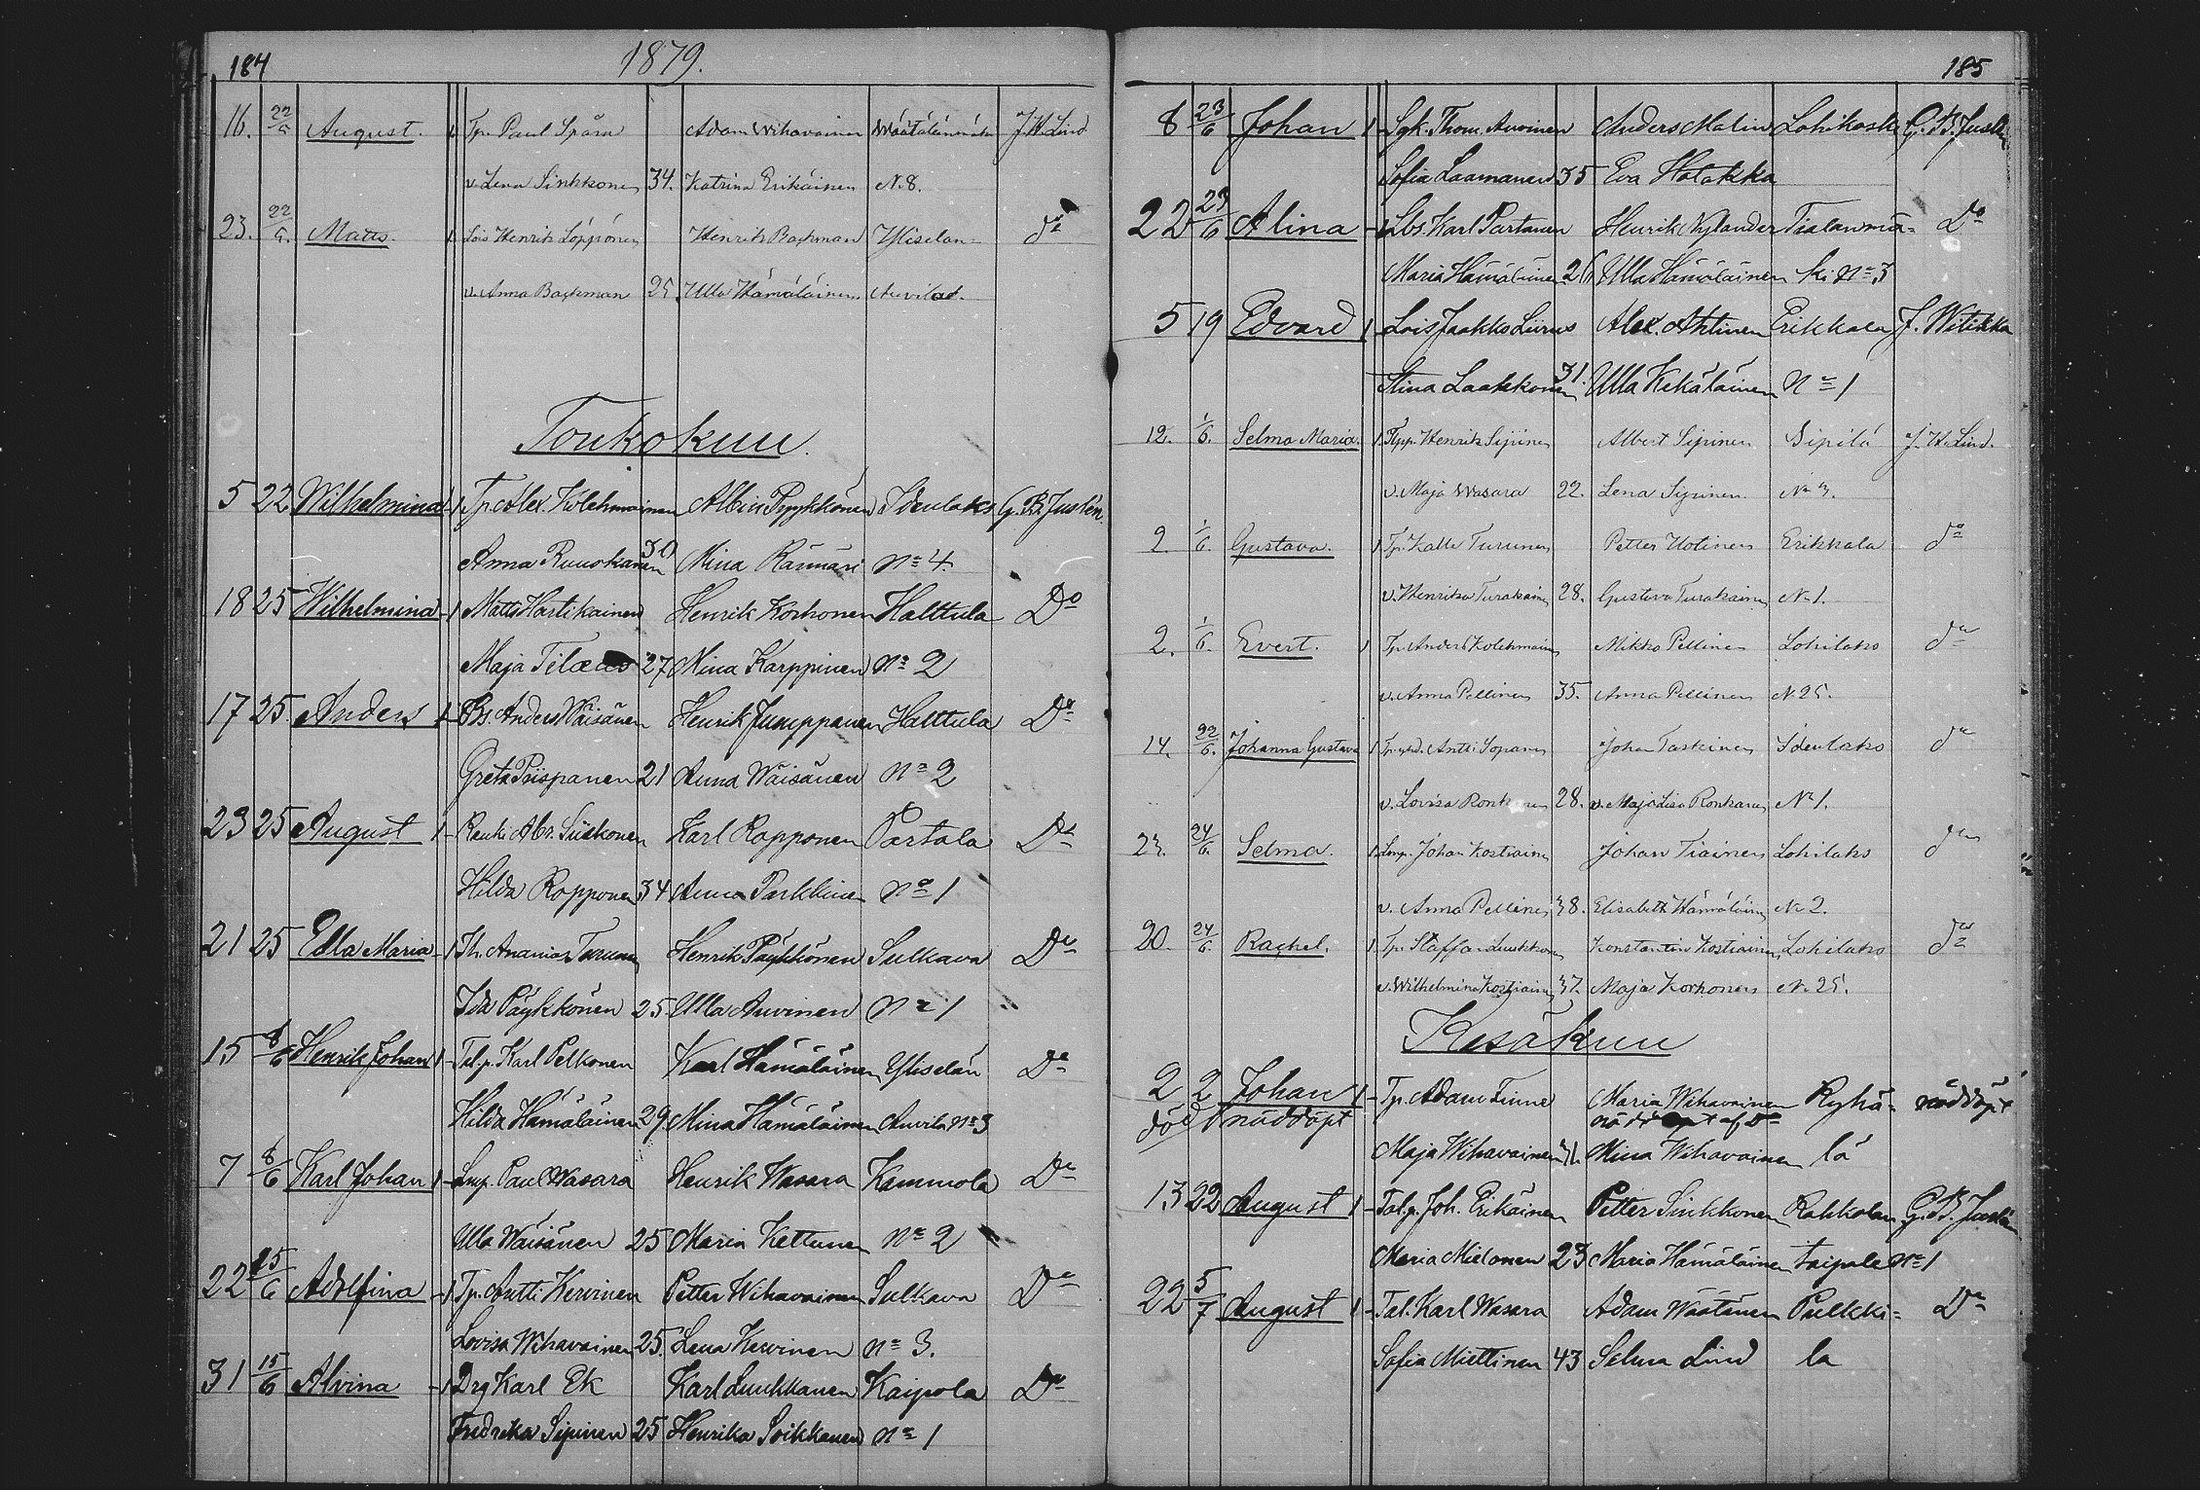 184
1879.
16. 22/5 August. 1 Tp. Paul Spåra Adam Wihavainen Wäätälänmäki J.H. Lind
v. Lena Sinkkonen 34. Katrina Erikäinen No 8.
23. 22/5. Matts. 1. Lois Henrik Löppönen Henrik Backman Yliselän do
v. Anna Backman 25. Ulla Hämäläinen Auvilad.
Toukokuu.
5 22 Wilhelmina 1 Tp. Alex. Kolehmainen Albin Pöykkönen Idenlaks G.B. Juslén
Anna Ruuskanen 30 Mina Räimäri No 4.
18 25 Wilhelmina 1 Matts Hartikainen Henrik Korhonen Halttula Do
Maja 27 Mina Karppinen No 2
17 25. Anders 1 Bs. Anders Wäisänen Henrik Jumppanen Halttula Do
Greta Piispanen 21 Anna Wäisänen No 2
23 25 August 1 Renki Abr. Siiskonen Karl Ropponen Partala Do
Hilda Ropponen 34 Anna Parkkinen No 1
21 25 Edla Maria 1 Th. Ananias Turunen Henrik Päykkönen Sulkava Do
Ida Päykkönen 25. Ulla Auvinen No 1
15 8/6 Henrik Johan 1 Tal.p. Karl Pelkonen Karl Hämäläinen Yliselän Do
Hilda Hämäläinen 29 Mina Hämäläinen Auvila No 3
7 8/6 Karl Johan 1 Lmp. Paul Wasara Henrik Wasara Kammola Do
Ulla Wäisänen 25 Maria Kettunen No 2
22 15/6 Adolfina 1 Tp. Antti Kervinen Petter Wihavainen Sulkava Do
Lovisa Wihavainen 25. Lena Kervinen No 3.
31 15/6 Alvina 1 Drg Karl Ek Karl Luukkanen Kaipola Do
Fredrika Sipinen 25 Henrika Soikkanen No 1
185
8 23/6 Johan 1 Sgk. Thom. Auvinen Anders Malin Lohikoski G.B. Juslén
Sofia Laamanen 35 Eva Hotakka
22 29/6 Alina 1 Lbs Karl Partanen Henrik Nylander Tialanmä=Do
Maria Hämäläinen 26 Ulla Hämäläinen ki No 3
5 19 Edvard 1 Lois Jaakko Liirus Alex. Ahtinen Erikkala J. Witikka
Stina Laakkonen 31. Ulla Kekäläinen No 1
12. 1/6. Selma Maria. 1 Tpp. Henrik Sipinen Albert Sipinen Sipilä J.H. Lind.
v. Maja Wasara 22. Lena Sipinen No 3.
2. 1/6. Gustava. 1 Tp. Kalle Turunen Petter Hotinen Erikkala do
v. Henrika Turakainen 28. Gustava Turakainen No 1.
2. 1/6. Evert. 1 Tp. Anders Kolehmainen Mikko Pellinen Lohilaks do
v. Anna Pellinen 35. Anna Pellinen No 25.
14. 22/6. Johanna Gustava 1 Antti Sopanen Johan Taskinen Idenlaks do
v. Lovisa Ronkanen 28. v. Maja Lisa Ronkanen No 1.
23. 24/6. Selma. 1 Lmp. Johan Kostiainen Johan Tiainen Lohilaks do
v. Anna Pellinen 38. Elisabeth Hämäläinen No 2.
20. 24/6. Rachel. 1 Tp. Staffan Luukkonen Konstantin Kostiainen Lohilaks do
v. Wilhelmina Kostiainen 37. Maja Korhonen No 25.
Kesäkuu
2 2 Johan 1 Tp. Adam Tinne Maria Wihavainen Ryhä= nöddöpt
död nöddöpt nöddöpt af Do
Maja Wihavainen 41. Mina Wihavainen lä
13 22 August 1 Tal.p. Joh. Erikäinen Petter Sinkkonen Rakkolan G.B. Juslén
Maria Mielonen 23 Maria Hämäläinen taipale No 1
22 5/7 August 1 Tal. Karl Wasara Adam Wäätänen Pulkki= Do
Sofia Miettinen 43 Selma Lind la